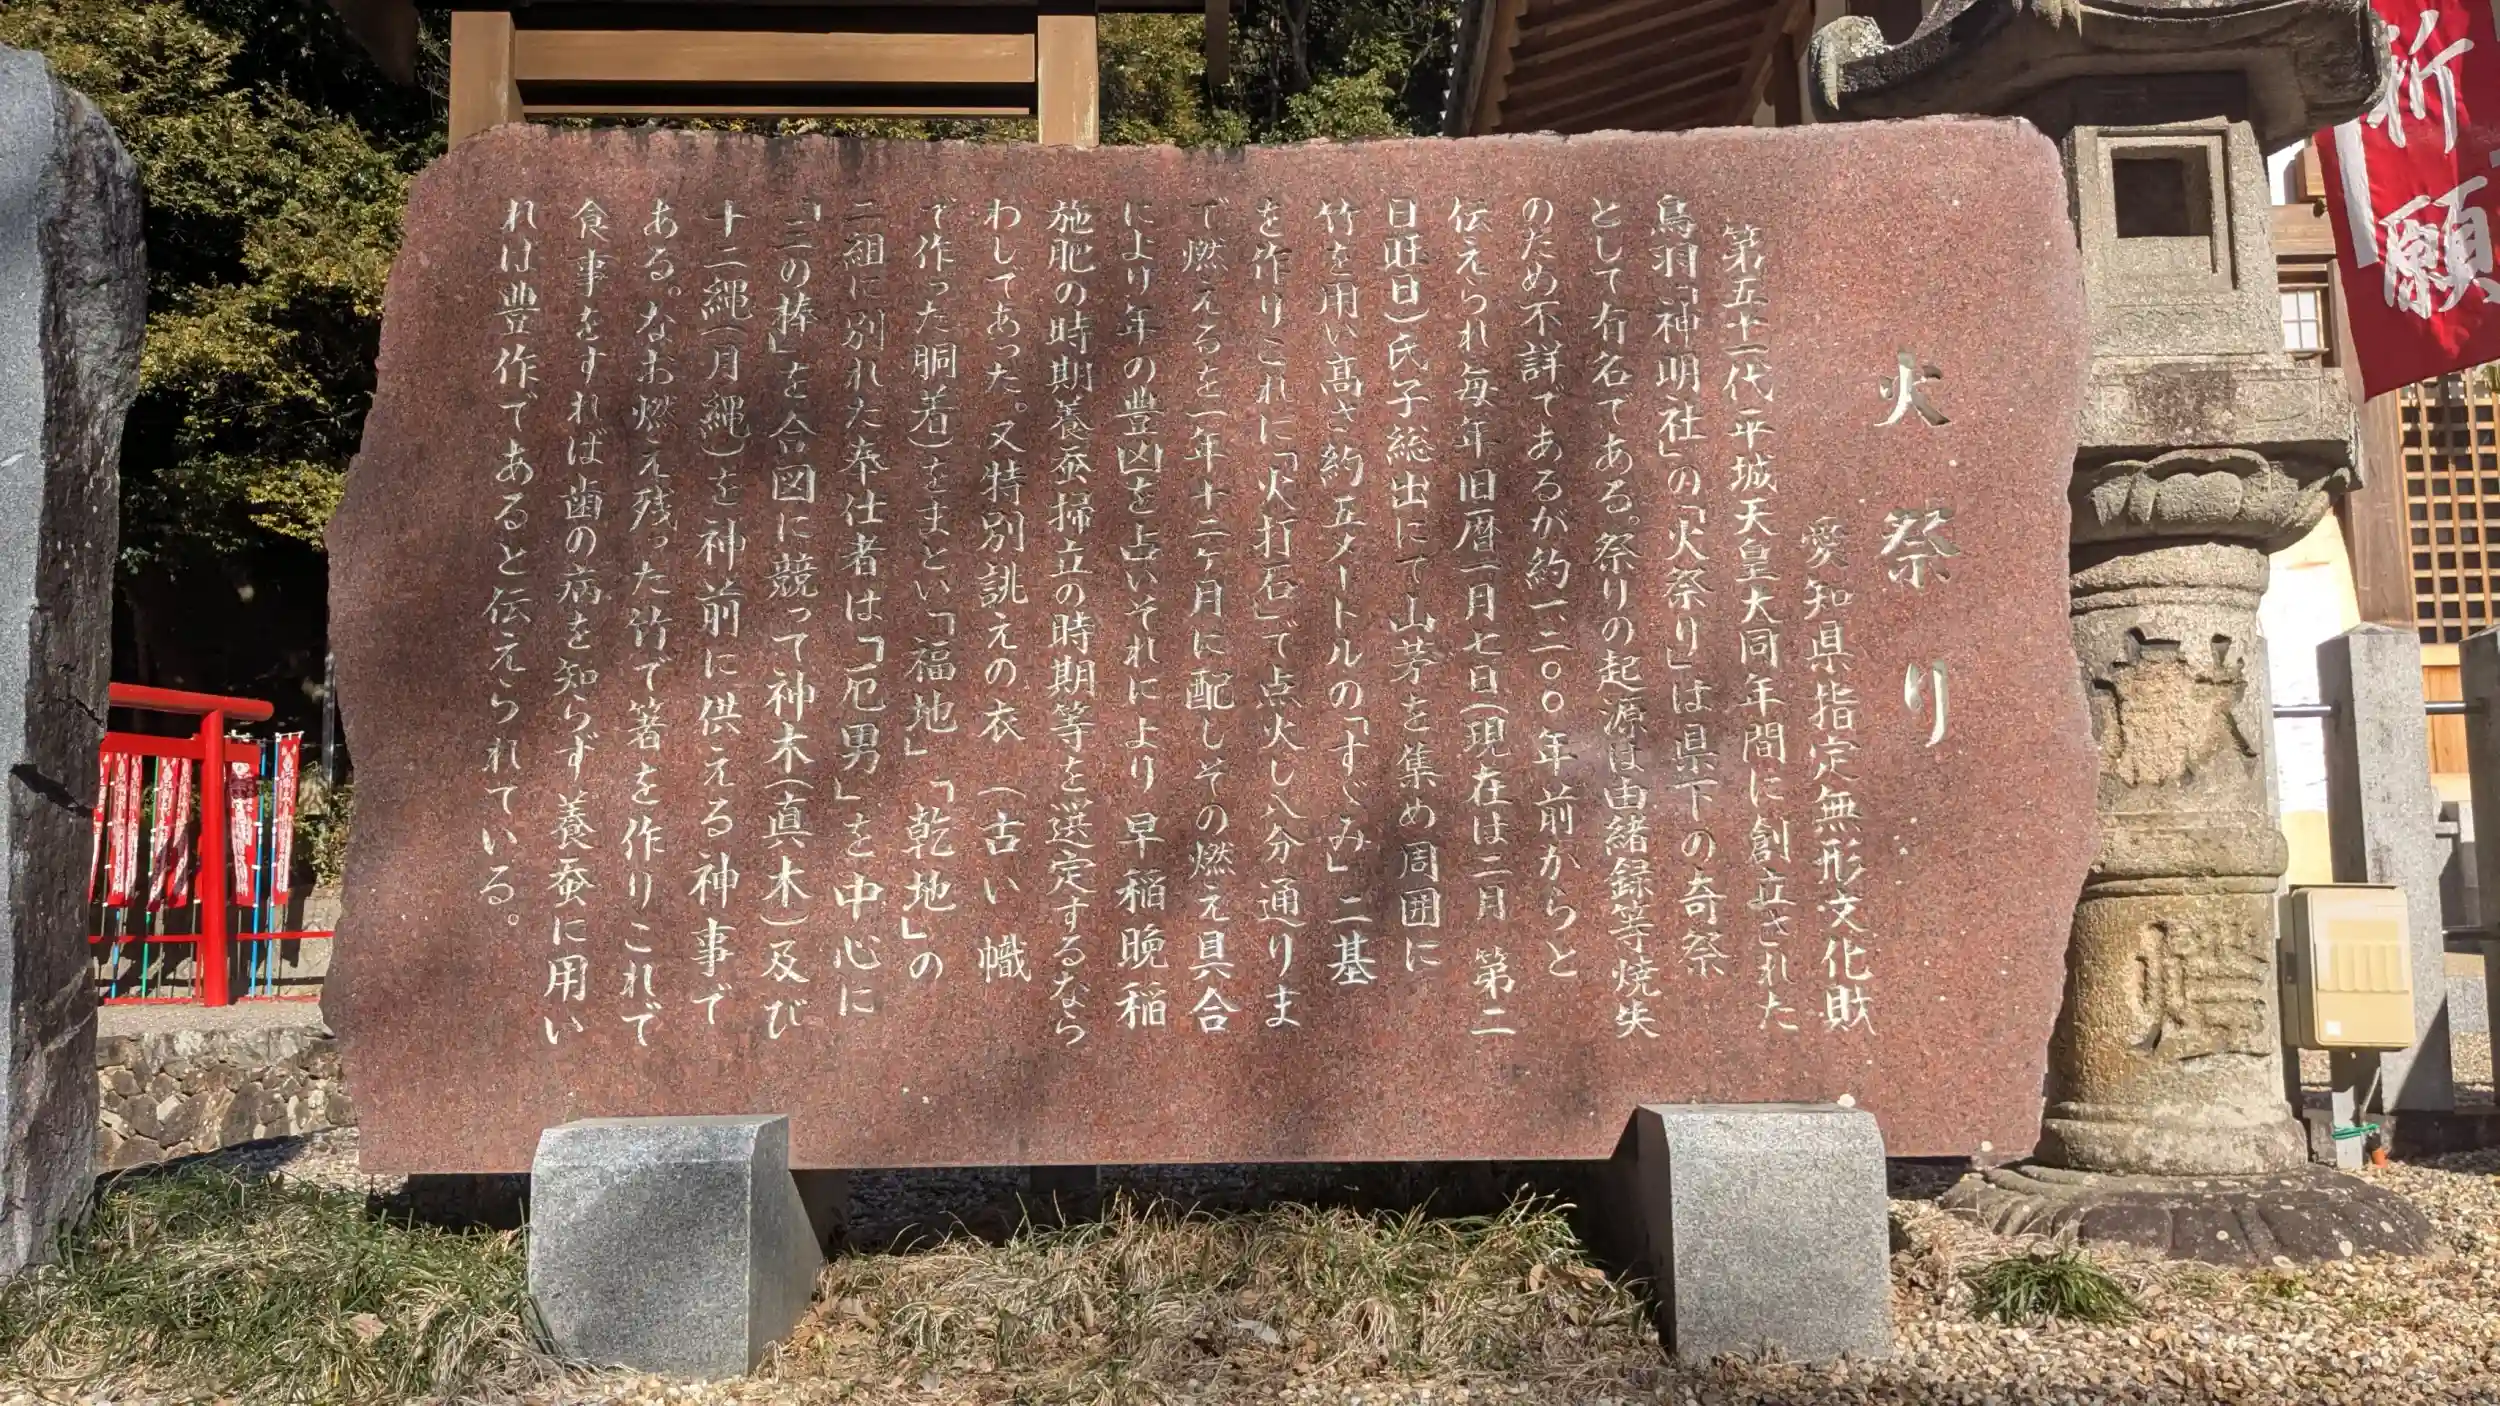 火祭り
愛知県指定無形文化財
第五十一代平城天皇大同年間に創立された
鳥羽「神明社」の「火祭り」は県下の奇祭
として有名である。祭りの起源は由緒録等焼失
のため不詳であるが約一、二〇〇年前からと
伝えられ毎年旧暦一月七日(現在は二月 第二
日旺日)氏子総出にて山茅を集め周囲に
竹を用い高さ約五メートルの「すゞみ」二基
を作りこれに「火打石」で点火し八分通りま
で燃えるを一年十二ヶ月に配しその燃え具合
により年の豊凶を占いそれにより早稲晩稲
施肥の時期養蚕掃立の時期等を選定するなら
わしであった。又特別誂えの衣(古い幟
で作った胴着)をまとい「福地」「乾地」の
二組に別れた奉仕者は「厄男」を中心に
「三の棒」を合図に競って神木(真木)及び
十二縄(月縄)を神前に供える神事で
ある。なお燃え残った竹で箸を作りこれで
食事をすれば歯の病を知らず養蚕に用い
れば豊作であると伝えられている。
祈願